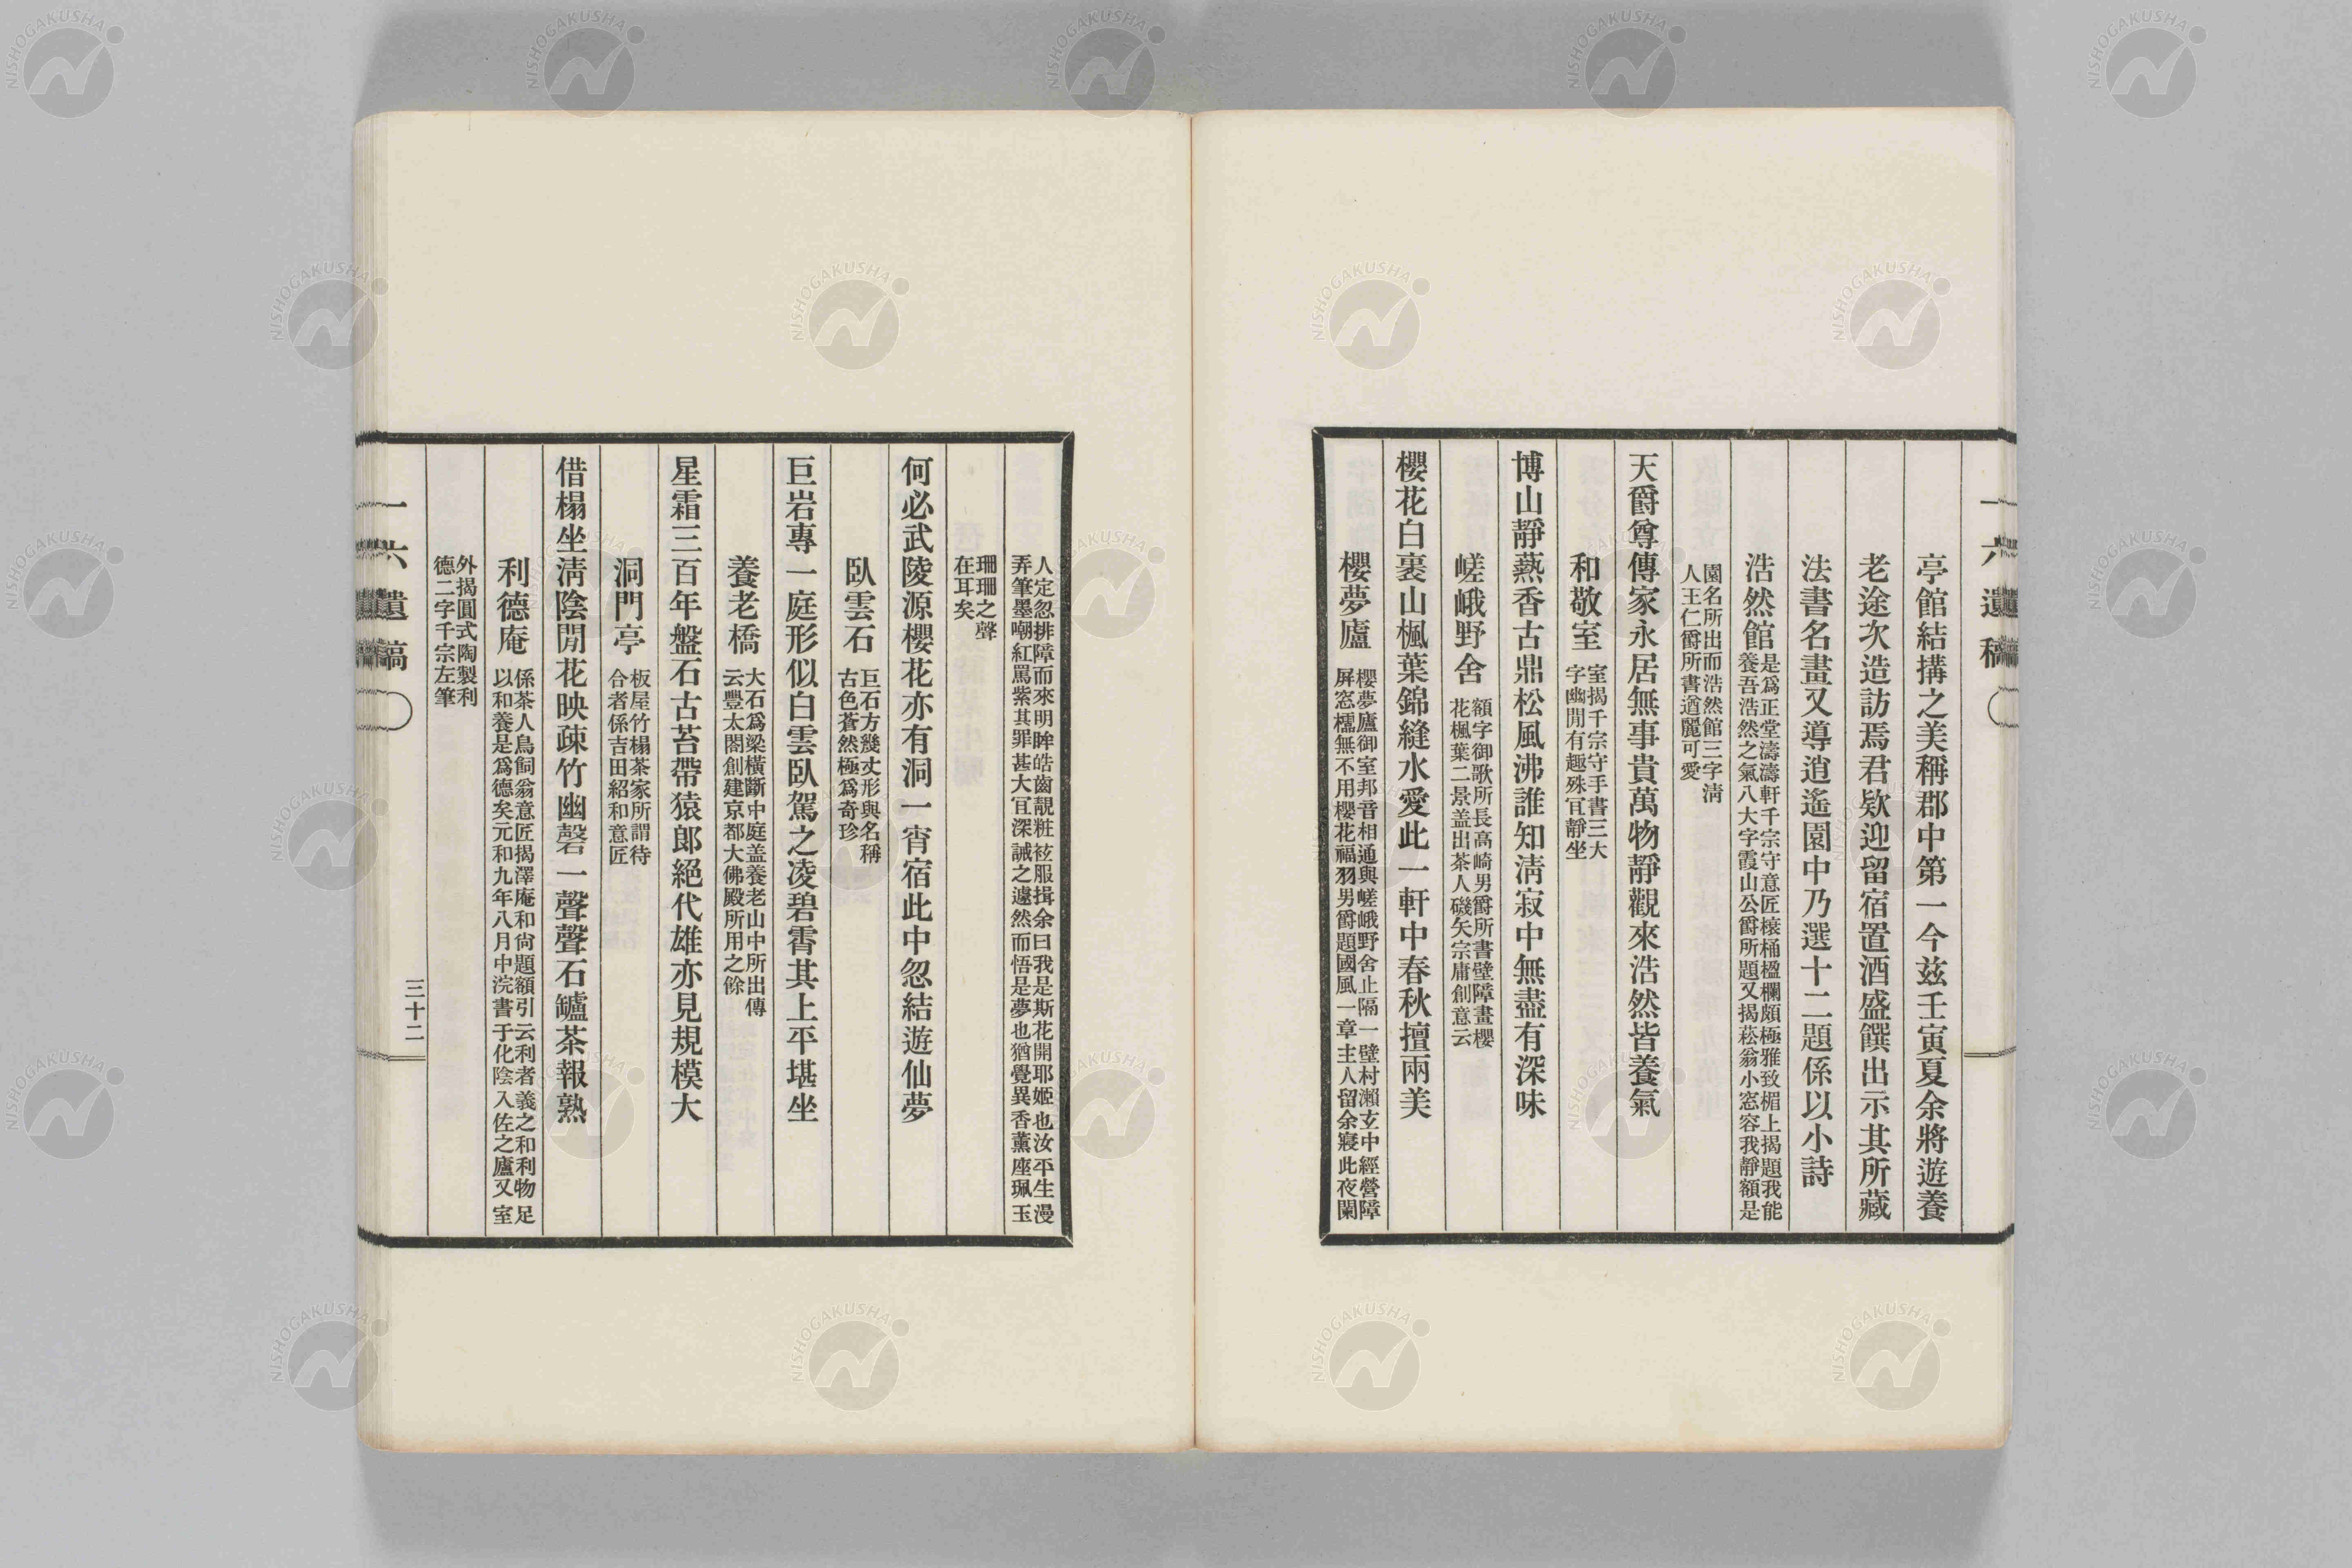 一六遺稿
亭館結搆之美稱郡中第一今茲壬寅夏余將遊養
老途次造訪焉君欵迎留宿置酒盛饌出示其所藏
法書名畫又導逍遙園中乃選十二題係以小詩
浩然館
是爲正堂濤濤軒千宗守意匠榱桶楹欄頗極雅致楣上揭題我能
養吾浩然之氣八大字霞山公爵所題又揭菘翁小窓容我靜額是
園名所出而浩然館三字淸
人王仁爵所書遒麗可愛
天爵尊傳家永居無事貴萬物靜觀來浩然皆養氣
和敬室
室揭千宗守手書三大
字幽閒有趣殊冝靜坐
博山靜爇香古鼎松風沸誰知淸寂中無盡有深味
嵯峨野舍
額字御歌所長高崎男爵所書壁障畫櫻
花楓葉二景盖出茶人磯矢宗庸創意云
櫻花白裹山楓葉錦縫水愛此一軒中春秋擅兩美
櫻夢廬
櫻夢廬御室邦音相通與嵯峨野舍止隔一壁村瀨玄中經營障
屏窓櫺無不用櫻花福羽男爵題國風一章主人留余寢此夜闌
人定忽排障而來明眸皓齒靚粧袨服揖余曰我是斯花開耶姬也汝平生漫
弄筆墨嘲紅罵紫其罪甚大冝深誡之遽然而悟是夢也猶覺異香薰座珮玉
珊珊之聲
在耳矣
何必武陵源櫻花亦有洞一宵宿此中忽結遊仙夢
臥雲石
巨石方幾丈形與名稱
古色蒼然極爲奇珍
巨岩專一庭形似白雲臥駕之凌碧霄其上平堪坐
養老橋
大石爲梁橫斷中庭盖養老山中所出傳
云豐太閤創建京都大佛殿所用之餘
星霜三百年盤石古苔帶猿郞絕代雄亦見規模大
洞門亭
板屋竹榻茶家所謂待
合者係吉田紹和意匠
借榻坐淸陰閒花映疎竹幽磬一聲聲石罏茶報熟
利德庵
係茶人鳥飼翁意匠揭澤庵和尙題額引云利者義之和利物足
以和養是爲德矣元和九年八月中浣書于化陰入佐之廬又室
外揭圓式陶製利
德二字千宗左筆
一六遺稿
三十二